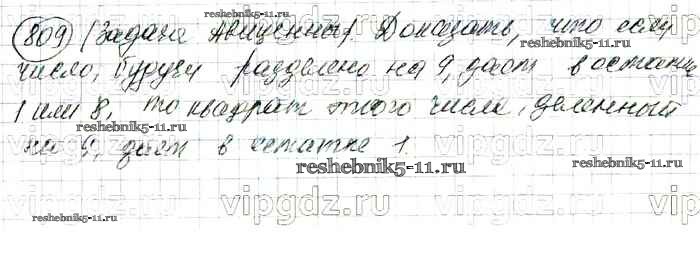 809 (Задача Авиценны). Доказать, что если
число, будучи разделено на 9, дает в остатке
1 или 8, то квадрат этого числа, деленный
на 9, дает в остатке 1.
reshebnik5-11.ru
reshebnik5-11.ru
reshebnik5-11.ru
reshebnik5-11.ru
vipgdz.ru
vipgdz.ru
vipgdz.ru
vipgdz.ru
vipgdz.ru
vipgdz.ru